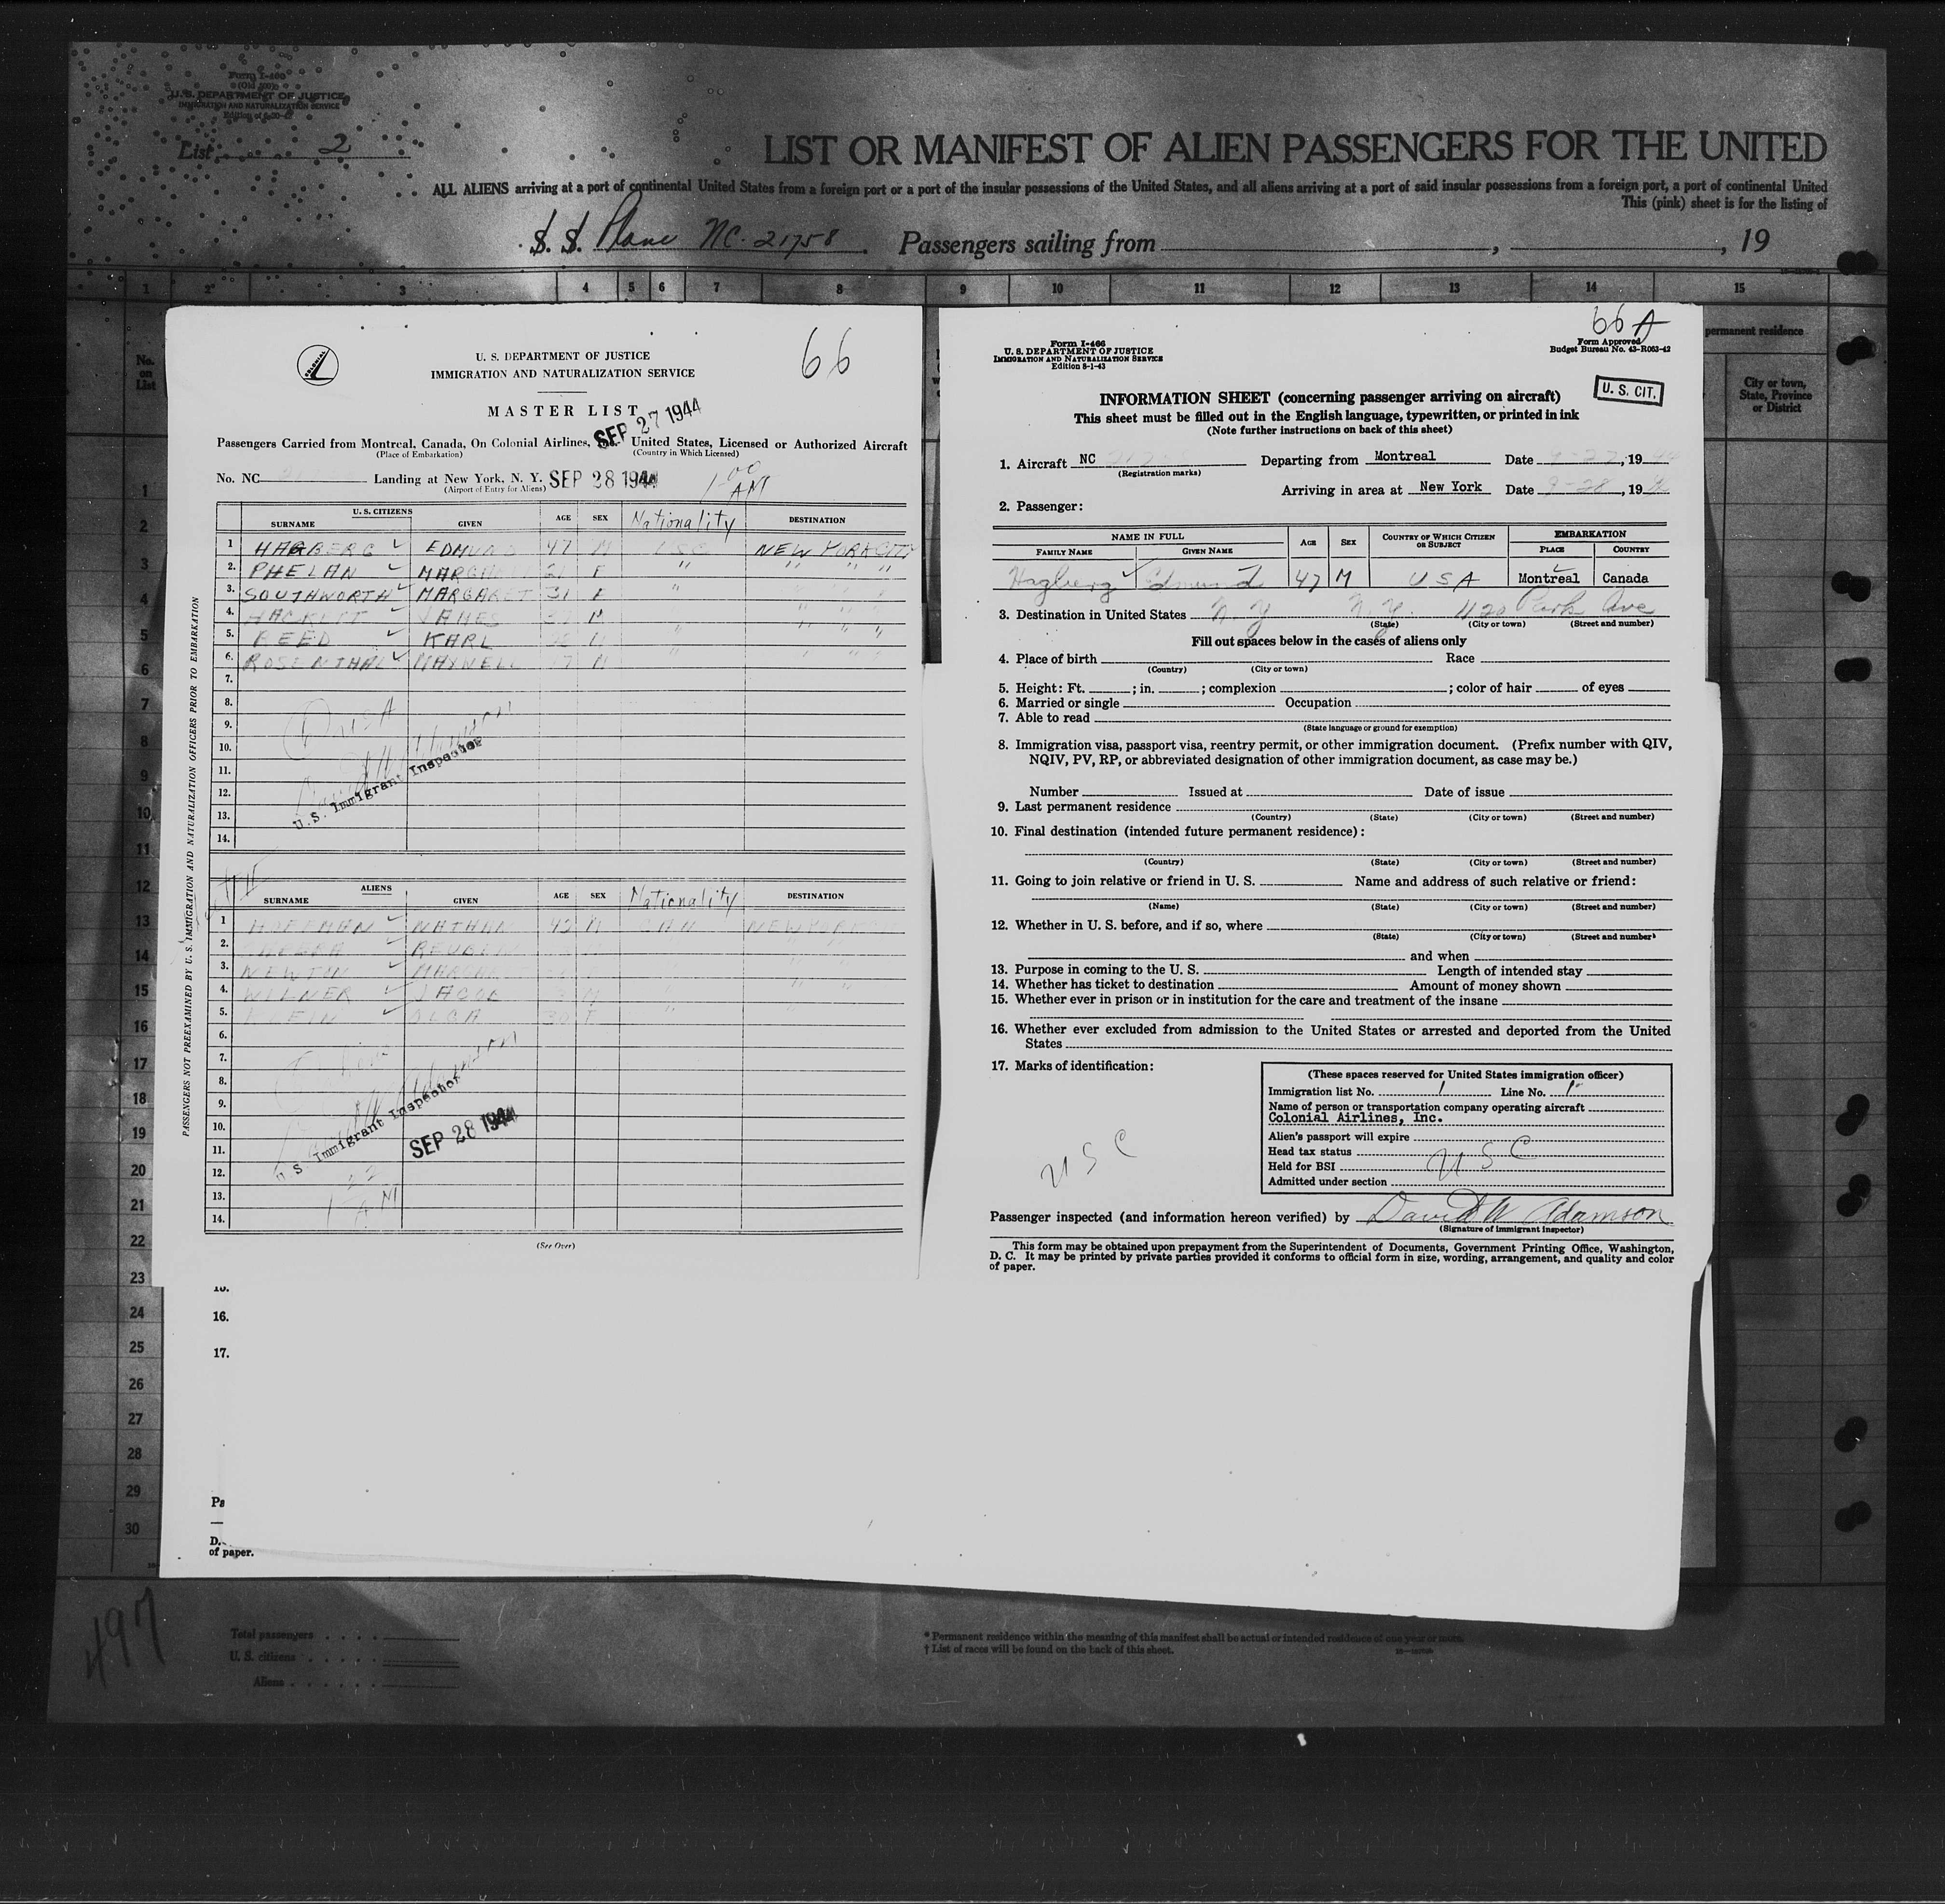 Form I-466
(Old 500)
U. S. DEPARTMENT OF JUSTICE
IMMIGRATION AND NATURALIZATION SERVICE
List 2
LIST OR MANIFEST OF ALIEN PASSENGERS FOR THE UNITED
ALL ALIENS arriving at a port of continental United States from a foreign port or a port of the insular possessions of the United States, and all aliens arriving at a port of said insular possessions from a foreign port, a port of continental United
This (pink) sheet is for the listing of
S. S. Plane NC. 21758 Passengers sailing from , , 19
1 2 3 4 5 6 7 8 9 10 11 12 13 14 15
permanent residence
No. on List
City or town, State, Province or District
66
COLONIAL
U. S. DEPARTMENT OF JUSTICE
IMMIGRATION AND NATURALIZATION SERVICE
MASTER LIST
SEP 27 1944
Passengers Carried from Montreal, Canada, On Colonial Airlines, Inc. United States, Licensed or Authorized Aircraft
(Place of Embarkation) (Country in Which Licensed)
No. NC Landing at New York, N. Y. SEP 28 1944 1-00 AM
(Airport of Entry for Aliens)
U. S. CITIZENS
SURNAME GIVEN AGE SEX Nationality DESTINATION
1 HAGBERG EDMUND 47 M USC NEW YORK CITY
2. PHELAN 21 F " " " "
3. SOUTHWORTH MARGARET 31 F " " " "
4. HACKETT JAMES M " " " "
5. REED KARL M " " " "
6. ROSENTHAL MAXWELL 47 M " " " "
7.
8.
9.
10.
11.
12.
13.
14.
U. S. Immigrant Inspector
ALIENS
SURNAME GIVEN AGE SEX Nationality DESTINATION
1 HOFFMAN NATHAN 43 M CAN NEW YORK
2. REUBEN
3. NEWTON
4. WILNER JACOB M
5. KLEIN OLGA 30 F
6.
7.
8.
9.
10.
11.
12.
13.
14.
U. S. Immigrant Inspector
SEP 28 1944
1 AM
(See Over)
PASSENGERS NOT PREEXAMINED BY U. S. IMMIGRATION AND NATURALIZATION OFFICERS PRIOR TO EMBARKATION
66 A
Form I-466
U. S. DEPARTMENT OF JUSTICE
IMMIGRATION AND NATURALIZATION SERVICE
Edition 8-1-43
Form Approved
Budget Bureau No. 43-R063-42
U. S. CIT.
INFORMATION SHEET (concerning passenger arriving on aircraft)
This sheet must be filled out in the English language, typewritten, or printed in ink
(Note further instructions on back of this sheet)
1. Aircraft NC Departing from Montreal Date 9-27, 1944
(Registration marks)
Arriving in area at New York Date 9-28, 19
2. Passenger:
NAME IN FULL AGE SEX COUNTRY OF WHICH CITIZEN OR SUBJECT EMBARKATION
FAMILY NAME GIVEN NAME PLACE COUNTRY
Hagberg Edmund 47 M USA Montreal Canada
3. Destination in United States N.Y. N.Y. 420 Park Ave
(State) (City or town) (Street and number)
Fill out spaces below in the cases of aliens only
4. Place of birth Race
(Country) (City or town)
5. Height: Ft. ; in. ; complexion ; color of hair of eyes
6. Married or single Occupation
7. Able to read
(State language or ground for exemption)
8. Immigration visa, passport visa, reentry permit, or other immigration document. (Prefix number with QIV,
NQIV, PV, RP, or abbreviated designation of other immigration document, as case may be.)
Number Issued at Date of issue
9. Last permanent residence
(Country) (State) (City or town) (Street and number)
10. Final destination (intended future permanent residence):
(Country) (State) (City or town) (Street and number)
11. Going to join relative or friend in U. S. Name and address of such relative or friend:
(Name) (State) (City or town) (Street and number)
12. Whether in U. S. before, and if so, where
(State) (City or town) (Street and number)
and when
13. Purpose in coming to the U. S. Length of intended stay
14. Whether has ticket to destination Amount of money shown
15. Whether ever in prison or in institution for the care and treatment of the insane
16. Whether ever excluded from admission to the United States or arrested and deported from the United
States
17. Marks of identification:
(These spaces reserved for United States immigration officer)
Immigration list No. 1 Line No. 1
Name of person or transportation company operating aircraft
Colonial Airlines, Inc.
Alien's passport will expire
Head tax status
Held for BSI USC
Admitted under section
USC
Passenger inspected (and information hereon verified) by David W Adamson
(Signature of immigrant inspector)
This form may be obtained upon prepayment from the Superintendent of Documents, Government Printing Office, Washington,
D. C. It may be printed by private parties provided it conforms to official form in size, wording, arrangement, and quality and color
of paper.
1
2
3
4
5
6
7
8
9
10
11
12
13
14
15
16
17
18
19
20
21
22
23
24
25
26
27
28
29
30
16.
17.
Pa
D.
of paper.
497
Total passengers
U. S. citizens
Aliens
* Permanent residence within the meaning of this manifest shall be actual or intended residence of one year or more.
† List of races will be found on the back of this sheet.